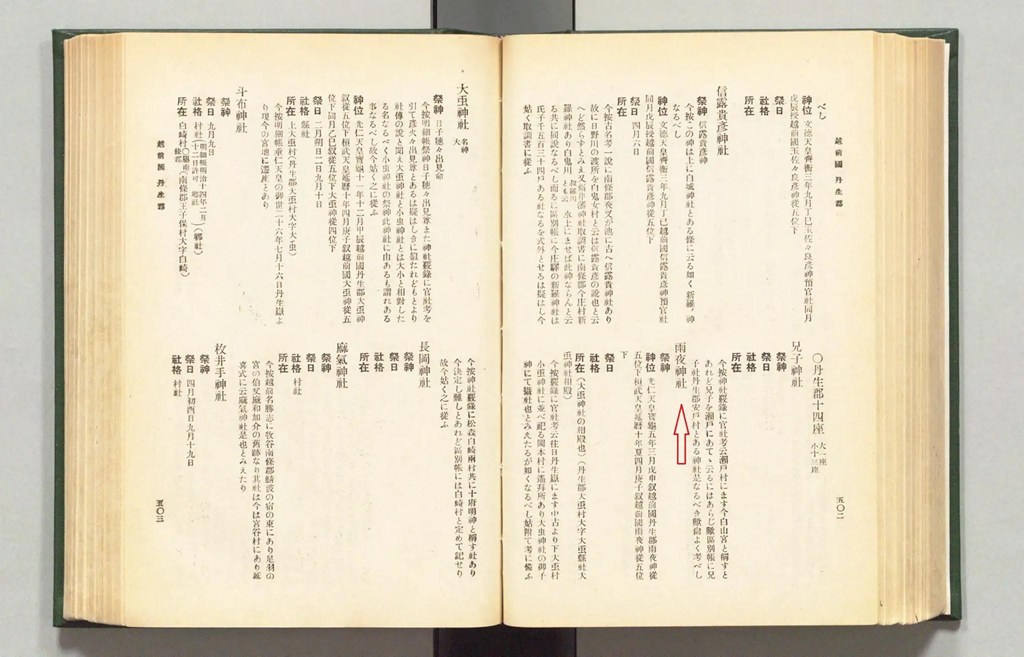 越前國 丹生郡
べし
神位 文德天皇齊衡三年九月丁巳玉佐々良彥神預官社同月
戊辰授越前國玉佐々良彥神從五位下
祭日
社格
所在
信露貴彥神社
祭神 信露貴彥神
今按この神は上に白城神社とある條に云る如く新羅ノ神
なるべし
神位 文德天皇齊衡三年九月丁巳越前國信露貴彥神預官社
同月戊辰授越前國信露貴彥神從五位下
祭日 四月六日
所在
今按古名考一說に南條郡夜叉が池に古へ信露貴神社あり
故に日野川の渡所を白鬼女村と云は信露貴彥の說也と云
へど然らずとみえ又
羅神社あり白鬼川
る共に同說なるべし而るに區別帳に今庄驛の新羅神社は
氏子千五百三十四戶ある社なるを式外とせるは疑はし今
姑く取調書に從ふ
○丹生郡十四座 大一座 小十三座
兄子神社
祭神
祭日
社格
所在
今按神社覈錄に官社考云瀨戶村にます今白山宮と稱すと
あれど兄子を瀨戶にあてゝ云るにはあらじ歟區別帳に兄
子社丹生郡安戶村とある神社是なるべき歟尙よく考べし
雨夜神社
祭神
神位 光仁天皇寶龜五年三月戊申叙越前國丹生郡雨夜神從
五位下桓武天皇延曆十年夏四月庚子叙越前國雨夜神從五位
下
祭日
社格
所在 (大虫神社の相殿也)(丹生郡大虫村大字大虫縣社大
虫神社相殿)
今按覈錄に官社考云往日丹生嶽にます中古より下大虫村
小虫神社に並べ祀る岡本村に遙拜所あり大虫神社の御子
神にて攝社也とみえたるが如くなるべし姑附て考に備ふ
五〇二
大虫神社 名神 大
祭神 日子穗々出見命
今按明細帳祭神日子穗々出見尊また神社覈錄に官社考を
引て彥火々出見尊とあるは疑はしきに似たれどもとより
社傳の說と聞え大虫神社と小虫神社とは大小と相對した
る名なるべく小虫神社の祭神此神社に由あるも謂れある
事なるべし故今姑く之に從ふ
神位 光仁天皇寶龜十一年十二月甲辰越前國丹生郡大虫神
叙從五位下桓武天皇延曆十年四月庚子叙越前國大虫神從五
位下同月乙巳叙從五位下大虫神從四位下
祭日 二月朔日二日九月十日
社格 縣社
所在 上大虫村(丹生郡大虫村大字大虫)
今按明細帳垂仁天皇の御世二十六年七月十六日丹生嶽よ
り現今の宮地に遷坐とあり
斗布神社
祭神
祭日 九月九日
社格 村社(明細帳明治十四年二月十二日許可 鄕社)(鄕社)
所在 白崎村(南條郡王子保村大字白崎)
越前國 丹生郡
今按神社覈錄に松森白崎兩村共に十府明神と稱す社あり
今決定し難しとあれど區別帳には白崎村と定めて記せり
故今姑く之に從ふ
長岡神社
祭神
祭日
社格
所在
麻氣神社
祭神
祭日
社格 村社
所在
今按越前名勝志に牧谷南條郡鯖波の宿の東にあり是羽の
宮の伯父麻和加介の舊跡なり其社は今は宮谷村にあり延
喜式に云麻氣神社是也とみえたり
枚井手神社
祭神
祭日 四月初酉日九月十九日
社格 村社
五〇三